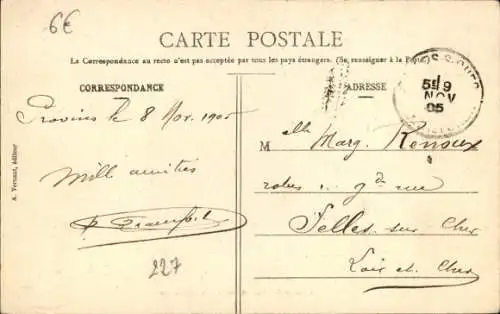 6€
CARTE POSTALE
La Correspondance au recto n'est pas acceptée par tous les pays étrangers. (Se renseigner à la Poste.)
CORRESPONDANCE
ADRESSE
Provins le 8 Nov. 1905
Mille amitiés
227
A. Vernant, éditeur
Melle Marg. Renoux
robes, gde rue
Selles sur Cher
Loir et Cher
5E 9
NOV
05